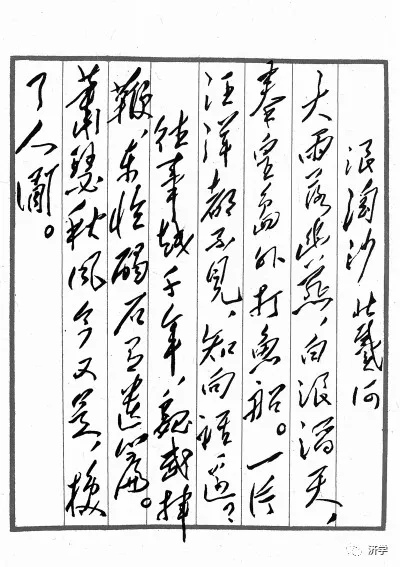 浪淘沙 北戴河
大雨落幽燕,白浪滔天,
秦皇岛外打魚船。一片
汪洋都不見,知向誰邊?
往事越千年,魏武挥
鞭,东临碣石有遗篇。
蕭瑟秋风今又是,换
了人间。
济学